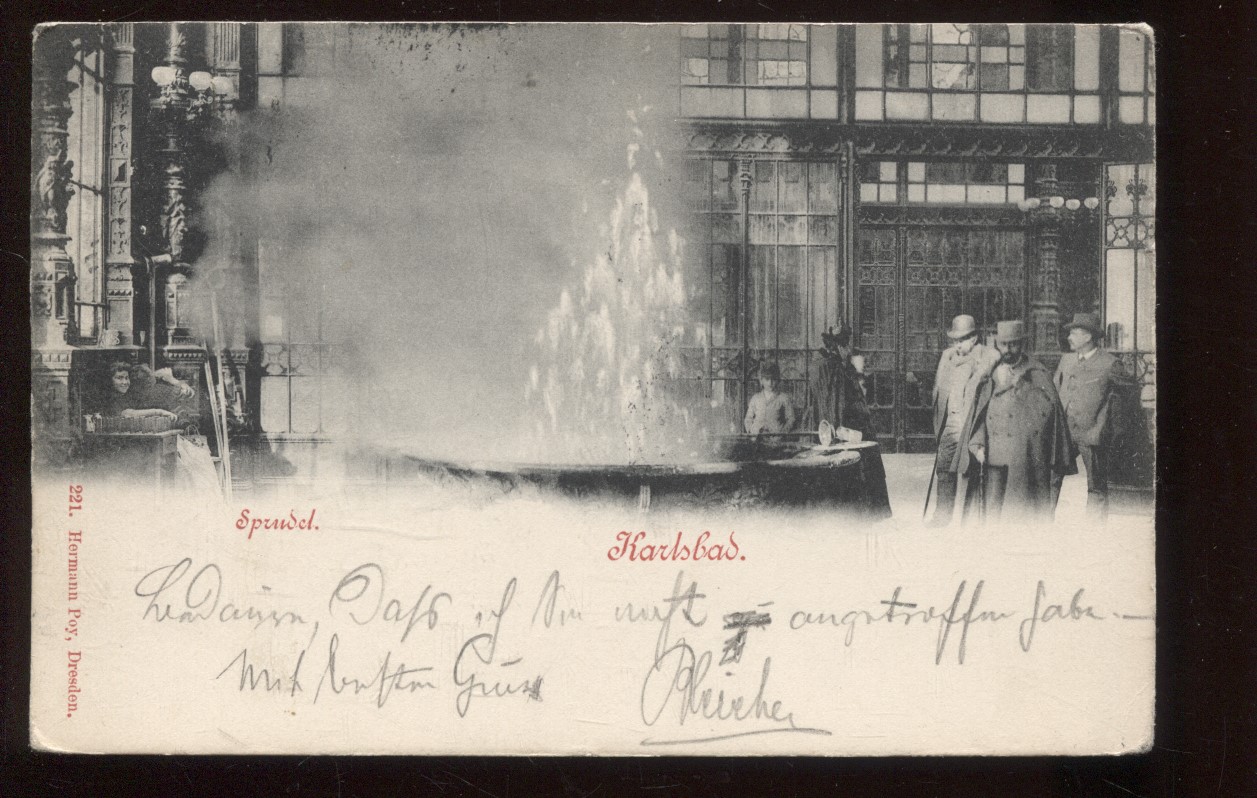 Sprudel.
Karlsbad.
221. Hermann Poy, Dresden.
Bedaure, daß ich Sie nicht angetroffen habe. —
Mit besten Gruss